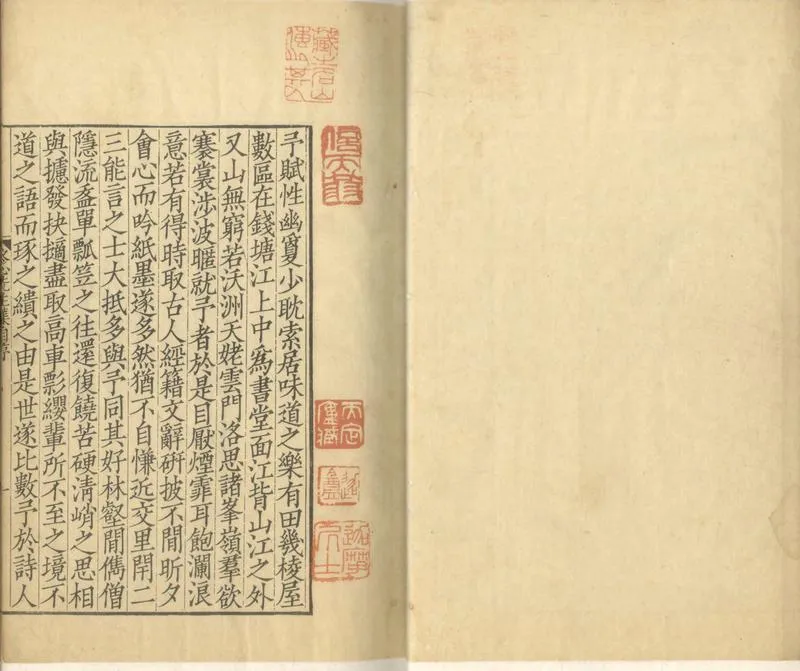 予賦性幽敻少耽索居味道之樂有田幾棱屋
數區在錢塘江上中爲書堂面江背山江之外
又山無窮若沃洲天姥雲門洛思諸峯嶺羣欲
褰裳涉波暱就予者於是目厭煙霏耳飽瀾浪
意若有得時取古人經籍文辭硏披不閒昕夕
會心而吟紙墨遂多然猶不自慊近交里閈二
三能言之士大抵多與予同其好林壑閒儁僧
隱流盋單瓢笠之往還復饒苦硬淸峭之思相
與攄發抉擿盡取高車彯纓輩所不至之境不
道之語而琢之繢之由是世遂比數予於詩人
冬心先生集自序
一